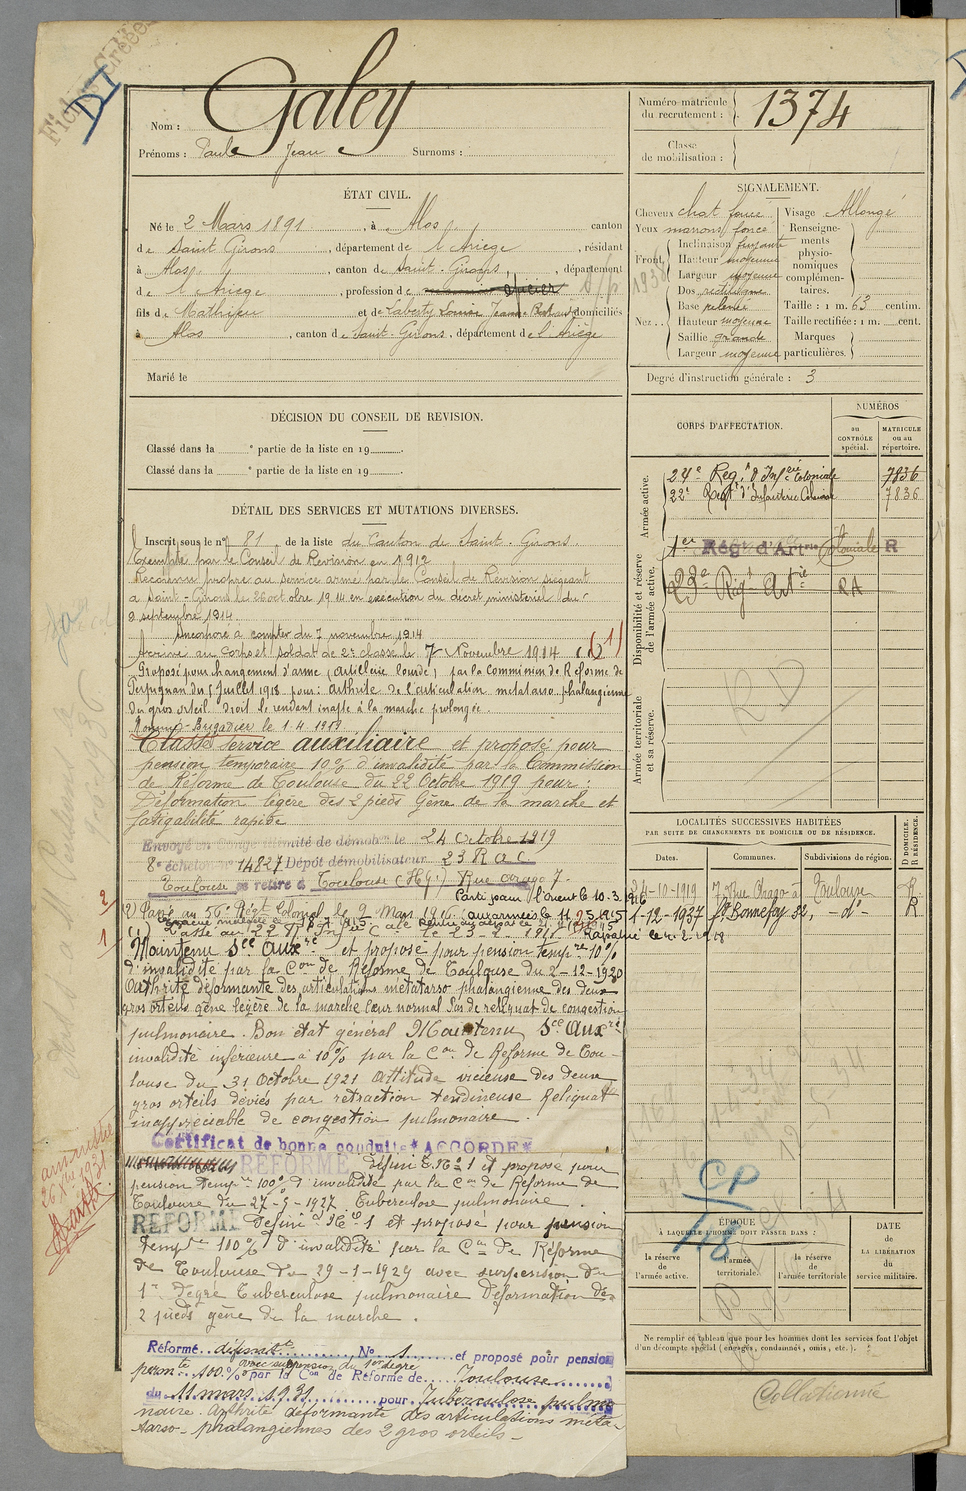 Fiche Créée
DI
Nom : Galey
Prénoms : Paul Jean Surnoms :
Numéro matricule du recrutement : 1374
Classe de mobilisation :
ÉTAT CIVIL.
Né le 2 Mars 1891, à Alos, canton
de Saint Girons, département de l'Ariège, résidant
à Alos, canton de Saint-Girons, département
de l'Ariège, profession de épicier
fils de Mathieu et de Laberty Louise Jeanne domiciliés
à Alos, canton de Saint-Girons, département de l'Ariège
Marié le
SIGNALEMENT.
Cheveux chat foncé Visage Allongé
Yeux marons foncé
Front Inclinaison fuyante
Hauteur moyenne
Largeur moyenne
Nez Dos rectiligne
Base relevée
Hauteur moyenne
Saillie grande
Largeur moyenne
Renseignements physionomiques complémentaires.
Taille : 1 m. 63 centim.
Taille rectifiée : 1 m. cent.
Marques particulières.
Degré d'instruction générale : 3
DÉCISION DU CONSEIL DE REVISION.
Classé dans la e partie de la liste en 19
Classé dans la e partie de la liste en 19
CORPS D'AFFECTATION.
NUMÉROS
au CONTRÔLE spécial.
MATRICULE ou au répertoire.
Armée active.
24e Reg.t d'Inf.erie Coloniale 7836
22e Regt d'Infanterie Coloniale 7836
Disponibilité et réserve de l'armée active.
1er Régt d'Artie Coloniale R
23e Régt Artie RA
Armée territoriale et sa réserve.
RD
DÉTAIL DES SERVICES ET MUTATIONS DIVERSES.
Inscrit sous le n° 81 de la liste du Canton de Saint-Girons
Exempté par le Conseil de Revision en 1912
Reconnu propre au service armé par le Conseil de Revision siégeant
à Saint-Girons le 26 octobre 1914 en exécution du décret ministériel du
9 septembre 1914.
Incorporé à compter du 7 novembre 1914
Arrivé au corps et soldat de 2e classe le 7 Novembre 1914
Proposé pour changement d'arme (artillerie lourde) par la Commission de Réforme de
Perpignan du 5 Juillet 1918 pour : arthrite de l'articulation métatarso phalangienne
du gros orteil droit le rendant inapte à la marche prolongée.
Nommé Brigadier le 1.4.1919
Classé service auxiliaire et proposé pour
pension temporaire 10% d'invalidité par la Commission
de Réforme de Toulouse du 22 Octobre 1919 pour :
Déformation légère des 2 pieds Gêne de la marche et
fatigabilité rapide
Envoyé en Congé illimité de démobon le 24 Octobre 1919
8e échelon n° 14827 Dépôt démobilisateur 23 R.A.C.
Toulouse se retire à Toulouse (Hte Gne) Rue Arago 7.
Parti pour l'Orient le 10.3.1916
(2) Passé au 56e Régt Colonial le 9 Mars 1916
Rapatrié le 4.2.1918
Maintenu Sce Auxre et proposé pour pension tempre 10%
d'invalidité par la Con de Réforme de Toulouse du 2-12-1920
Arthrite déformante des articulations métatarso phalangienne des deux
gros orteils gêne légère de la marche Cœur normal Pas de reliquat de congestion
pulmonaire. Bon état général Maintenu Sce Auxre
invalidité inférieure à 10% par la Con de Réforme de Tou-
louse du 31 Octobre 1921 Attitude vicieuse des deux
gros orteils déviés par rétraction tendineuse Reliquat
inappréciable de congestion pulmonaire.
Certificat de bonne conduite * ACCORDÉ *
RÉFORMÉ Définif N° 1 et proposé pour
pension temp.re 100% d'invalidité par la Con de Réforme de
Toulouse du 27-5-1927 Tuberculose pulmonaire.
RÉFORMÉ Définif N° 1 et proposé pour pension
temp.re 100% d'invalidité par la Con de Réforme
de Toulouse du 29-1-1929 avec suspension du
1er degré Tuberculose pulmonaire Déformation de
2 pieds gêne de la marche.
Réformé définitt N° 1 et proposé pour pension
permte 100% avec suspension du 1er degré par la Con de Réforme de Toulouse
du 11 mars 1931 pour Tuberculose pulmo
naire. Arthrite déformante des articulations méta-
tarso-phalangiennes des 2 gros orteils-
2
1
amnistié
LOCALITÉS SUCCESSIVES HABITÉES
PAR SUITE DE CHANGEMENTS DE DOMICILE OU DE RÉSIDENCE.
Dates. Communes. Subdivisions de région. D DOMICILE. R RÉSIDENCE.
24-10-1919 7 Rue Arago à Toulouse R
1-12-1937 fg Bonnefoy 32, -d°- R
CP
48
ÉPOQUE
À LAQUELLE L'HOMME DOIT PASSER DANS :
la réserve de l'armée active.
l'armée territoriale.
la réserve de l'armée territoriale
DATE DE LA LIBÉRATION du service militaire.
Ne remplir ce tableau que pour les hommes dont les services font l'objet
d'un décompte spécial (engagés, condamnés, omis, etc.).
Collationné